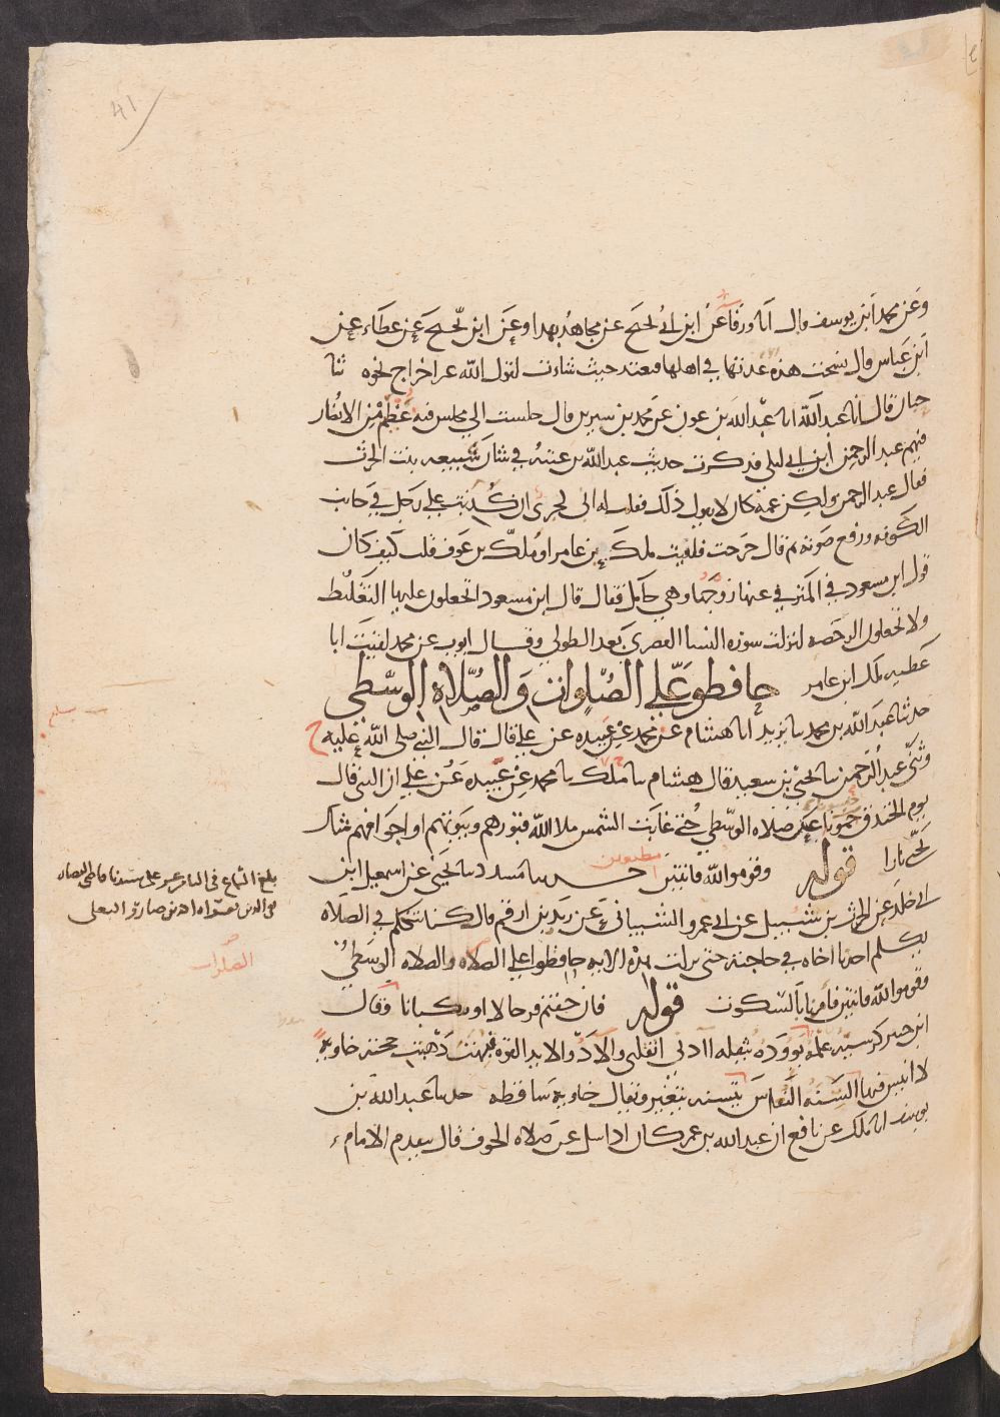 41
وعن محمد ابن يوسف قال انا ورقا عن ابن ابي نجيح عن مجاهد بهذا وعن ابن نجيح عن عطاء عن
ابن عباس قال نسخت هذه عدتها في اهلها فتعتد حيث شاءت لقول الله غير اخراج نحوه ثنا
حبان قال انا عبد الله انا عبد الله بن عون عن محمد بن سيرين قال جلست الي مجلس فيه عظم من الانصار
فيهم عبد الرحمن ابن ابي ليلي فذكرت حديث عبد الله بن عتبة في شان سبيعه بنت الحرث
فقال عبد الرحمن ولكن عمه كان لا يقول ذلك فقلت اني لجري ان كذبت علي رجل في جانب
الكوفه ورفع صوته ثم قال خرجت فلقيت ملك بن عامر او ملك بن عوف قلت كيف كان
قول ابن مسعود في المتوفي عنها زوجها وهي حامل فقال قال ابن مسعود اتجعلون عليها التغليظ
ولا تجعلون الرخصه لنزلت سوره النسا القصرى بعد الطولي وقال ايوب عن محمد لقيت ابا
عطيه ملك ابن عامر حافظو علي الصلوات والصلاة الوسطى
حدثنا عبد الله بن محمد نا يزيد انا هشام عن محمد عن عبيده عن علي قال قال النبي صلى الله عليه ح
وثنى عبد الرحمن نا يحيى بن سعيد قال هشام نا محمد عن عبيده عن علي ان النبي قال
يوم الخندق حبسونا عن صلاه الوسطي حتى غابت الشمس ملا الله قبورهم وبيوتهم او اجوافهم شك
يحيى نارا قوله وقوموا لله قانتين مطيعين حدثنا مسدد نا يحيى عن اسمعيل ابن
ابي خلد عن الحرث بن شبيل عن ابي عمرو الشيباني عن زيد بن ارقم قال كنا نتكلم في الصلاه
يكلم احدنا اخاه في حاجته حتى نزلت هذه الايه حافظوا علي الصلاه والصلاه الوسطي
وقوموا لله قانتين فامرنا بالسكوت قوله فان خفتم فرجالا او ركبانا وقال
ابن جبير كرسيه علمه يؤوده يثقله ادني اثقلني والاد والايد القوه فبهت ذهبت حجته خاويه
لا انيس فيها السنه النعاس يتسنه يتغير ويقال خاويه ساقطه حدثنا عبد الله بن
يوسف انا ملك عن نافع ان عبد الله بن عمر كان اذا سئل عن صلاه الخوف قال يتقدم الامام
بلغ السماع في
الصلوات